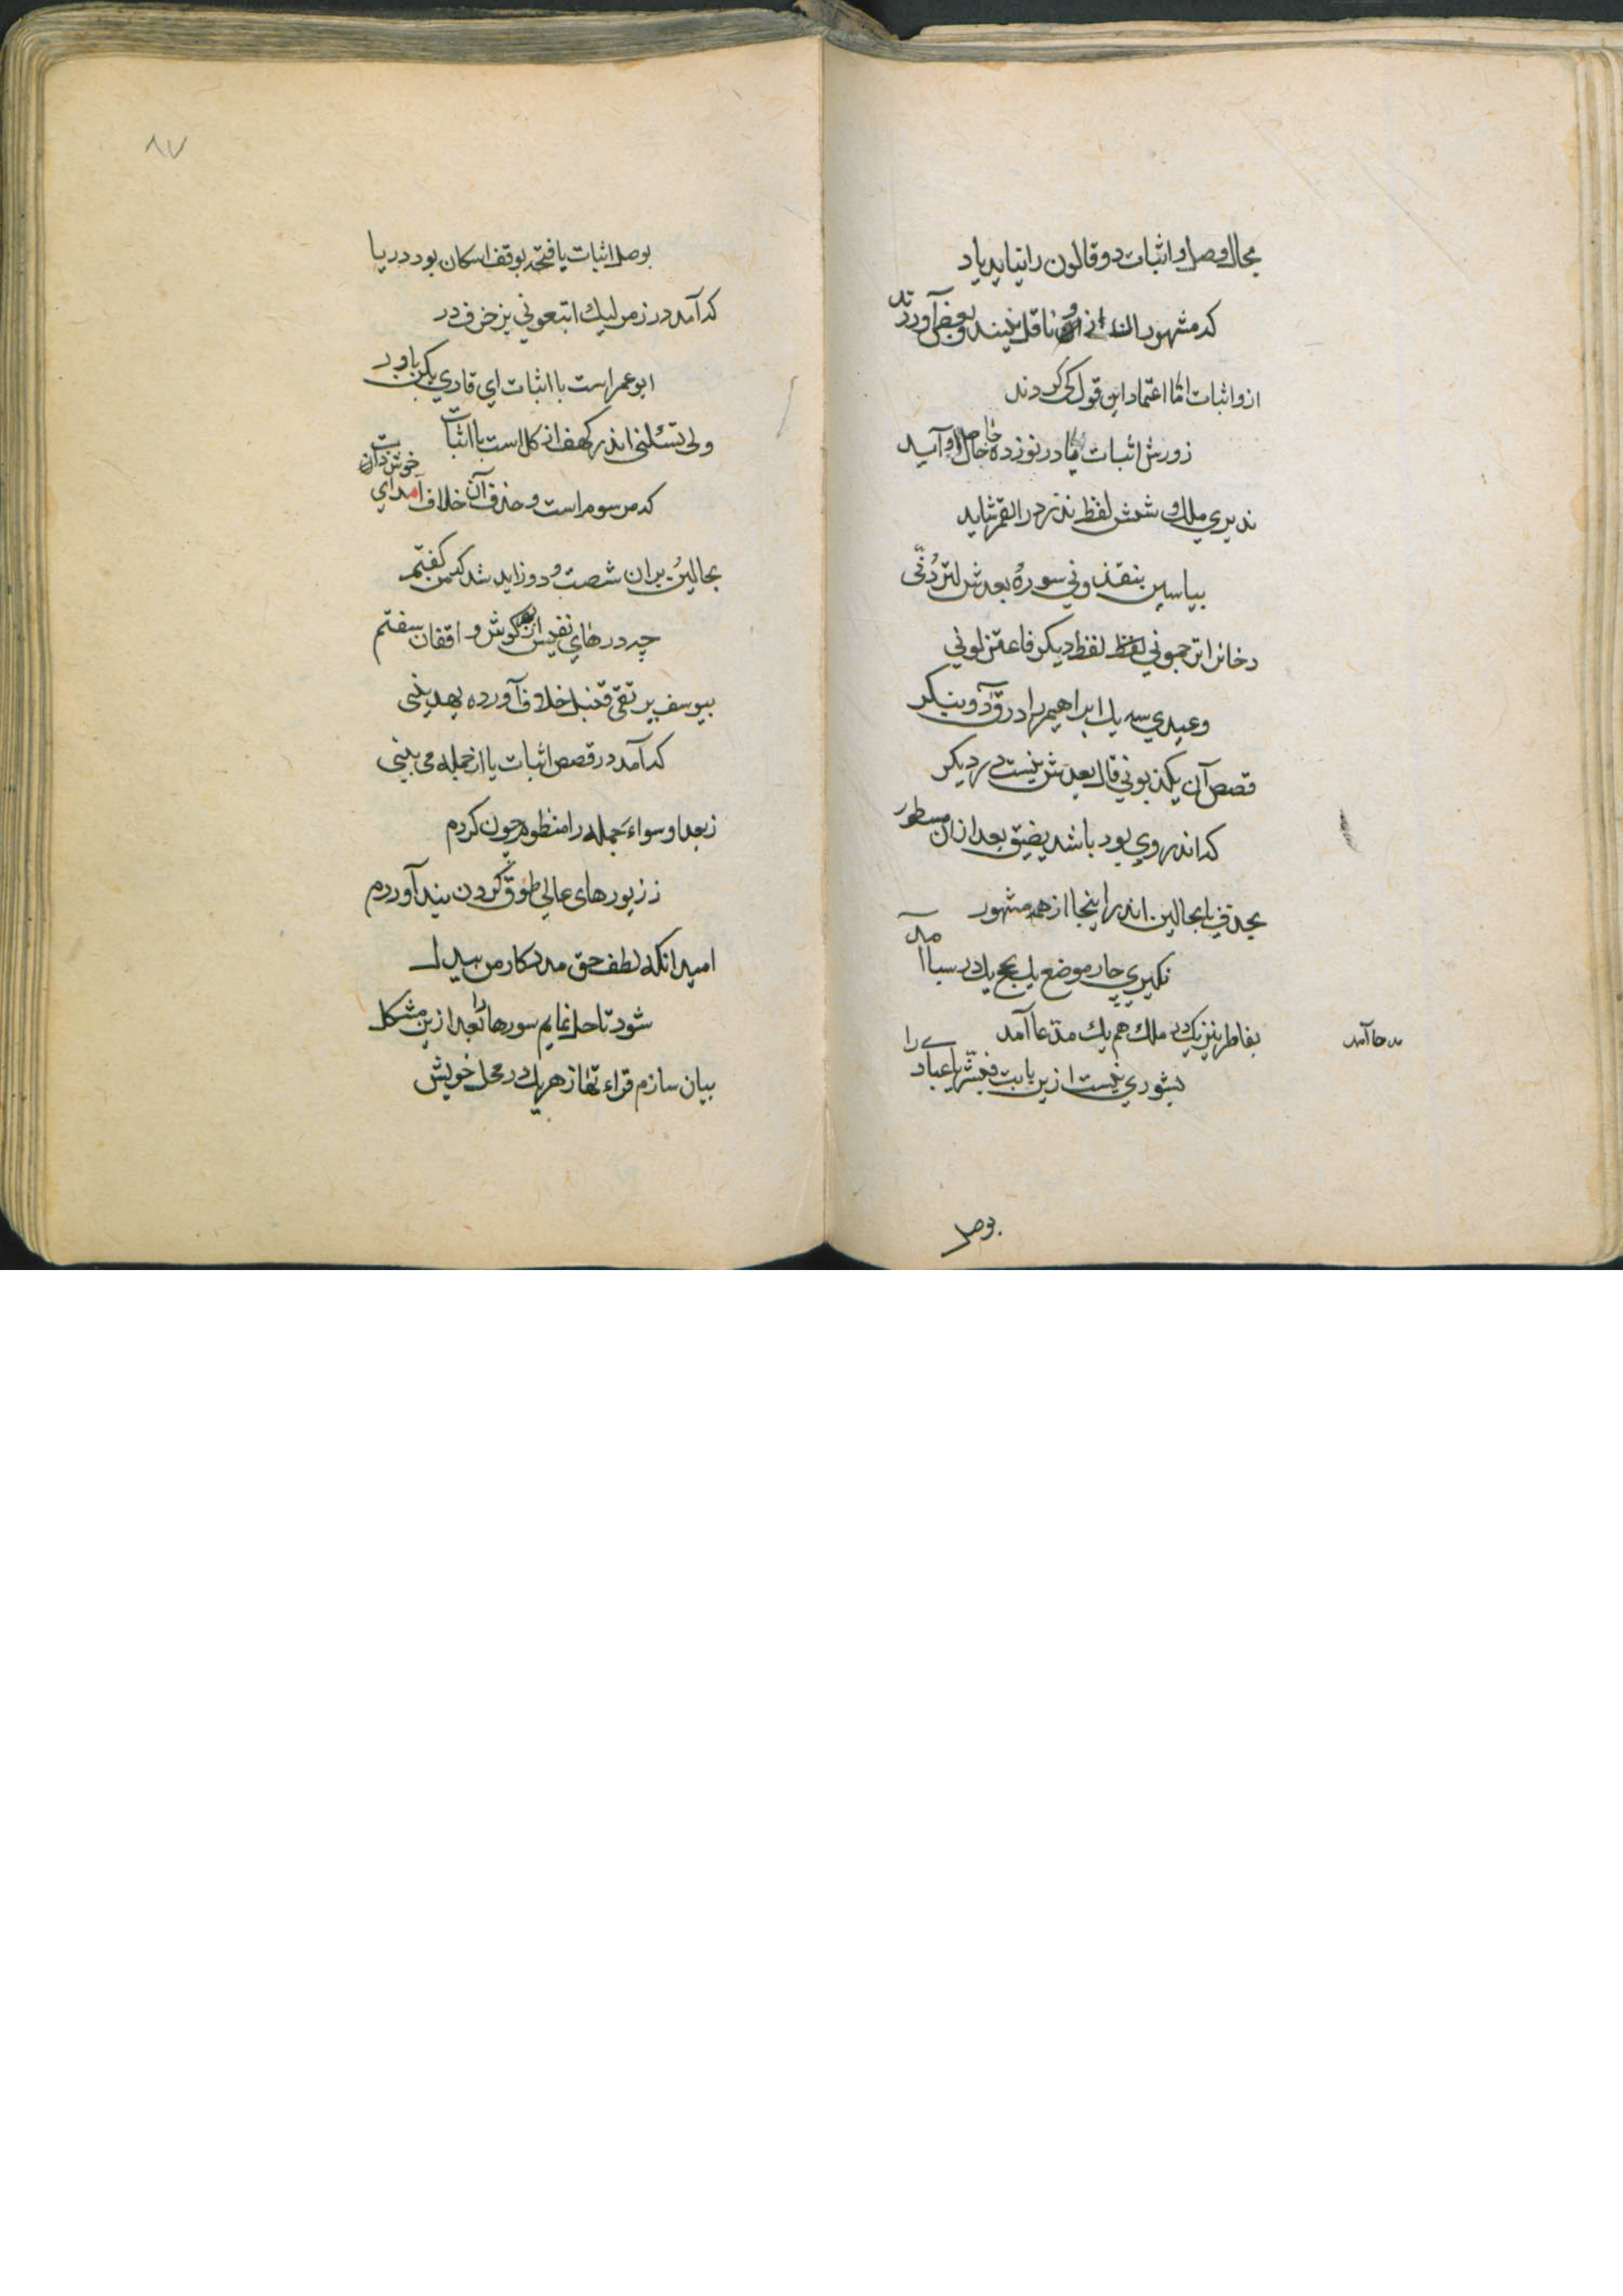 بحال وصل و اثبات دو قالون را نیاید یاد
که مشهور است انی ازو ناقل نیند و بعض آوردند
ازو اثبات امّا اعتماد این قول کی کردند
زورش اثبات یا در نوزده جا حاصل او آید
نذیری ملک و شش لفظ نذر در القمر شاید
بیاسین ینقذونی سورهٔ بعدش لتردُنّی
دخان ان ترجمونی لفظ دیگر فاعتزلونی
وعیدی سه یک ابراهیم را در ق دو بنگر
قصص آن یکذبونی قال بعدش نیست در دیگر
که اندر وی بود باشد یضیق بعد ازان مسطور
بحذف یا بحالین اند را ینجا از همه مشهور
نکیری چار موضع یک بحج یک در سبا آمد
بفاطر نیز یک در ملک هم یک مدّعا آمد
مدعا آمد
بشوری نیست ازین بابت فبشّر عبادی را
بوصل
۸۷
بوصل اثبات یا فتحه بوقف اسکان بود در یا
که آمد در زمر لیک اتبعونی بزخرف در
ابو عمر است با اثبات ای قاری بکن باور
ولی تسئلنی اندر کهف از کل است با اثبات
که مرسوم است و حذف آن خلاف آمد ای خوش ذات
بحالین بران شصت و دو زاید شد که من گفتم
چه درهای نفیس از بهر گوش واقفان سفتم
بیوسف یرتقی قنبل خلاف آورده بهدینی
که آمد در قصص اثبات یا از جمله می بینی
ز بعد او سواء جمله را منظوم چون کردم
ز زیورهای عالی طوق گردن بند آوردم
امید آنکه لطف حق مددکار من بیدل
شود تا حل نمایم سورها را بعد ازین مشکل
بیان سازم قراءتها ز هر یک در محل خویش